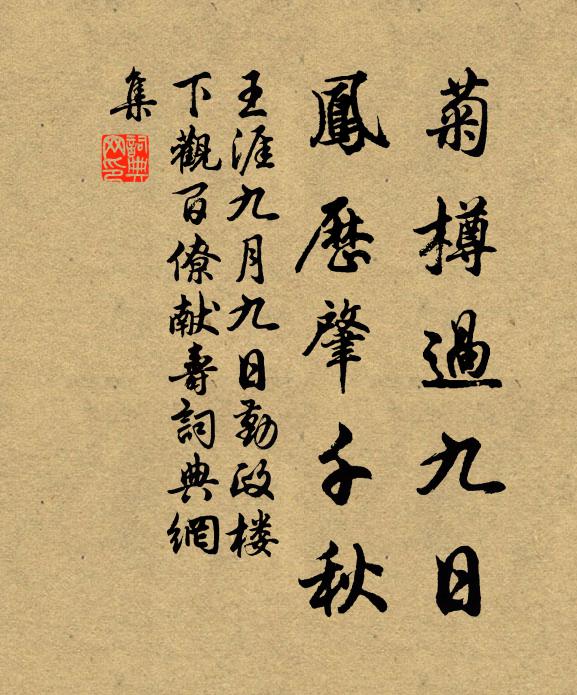 菊樽過九日
鳳歷肇千秋
王涯九月九日勤政楼
下觀百僚献壽詞典網
集
詞典
网印